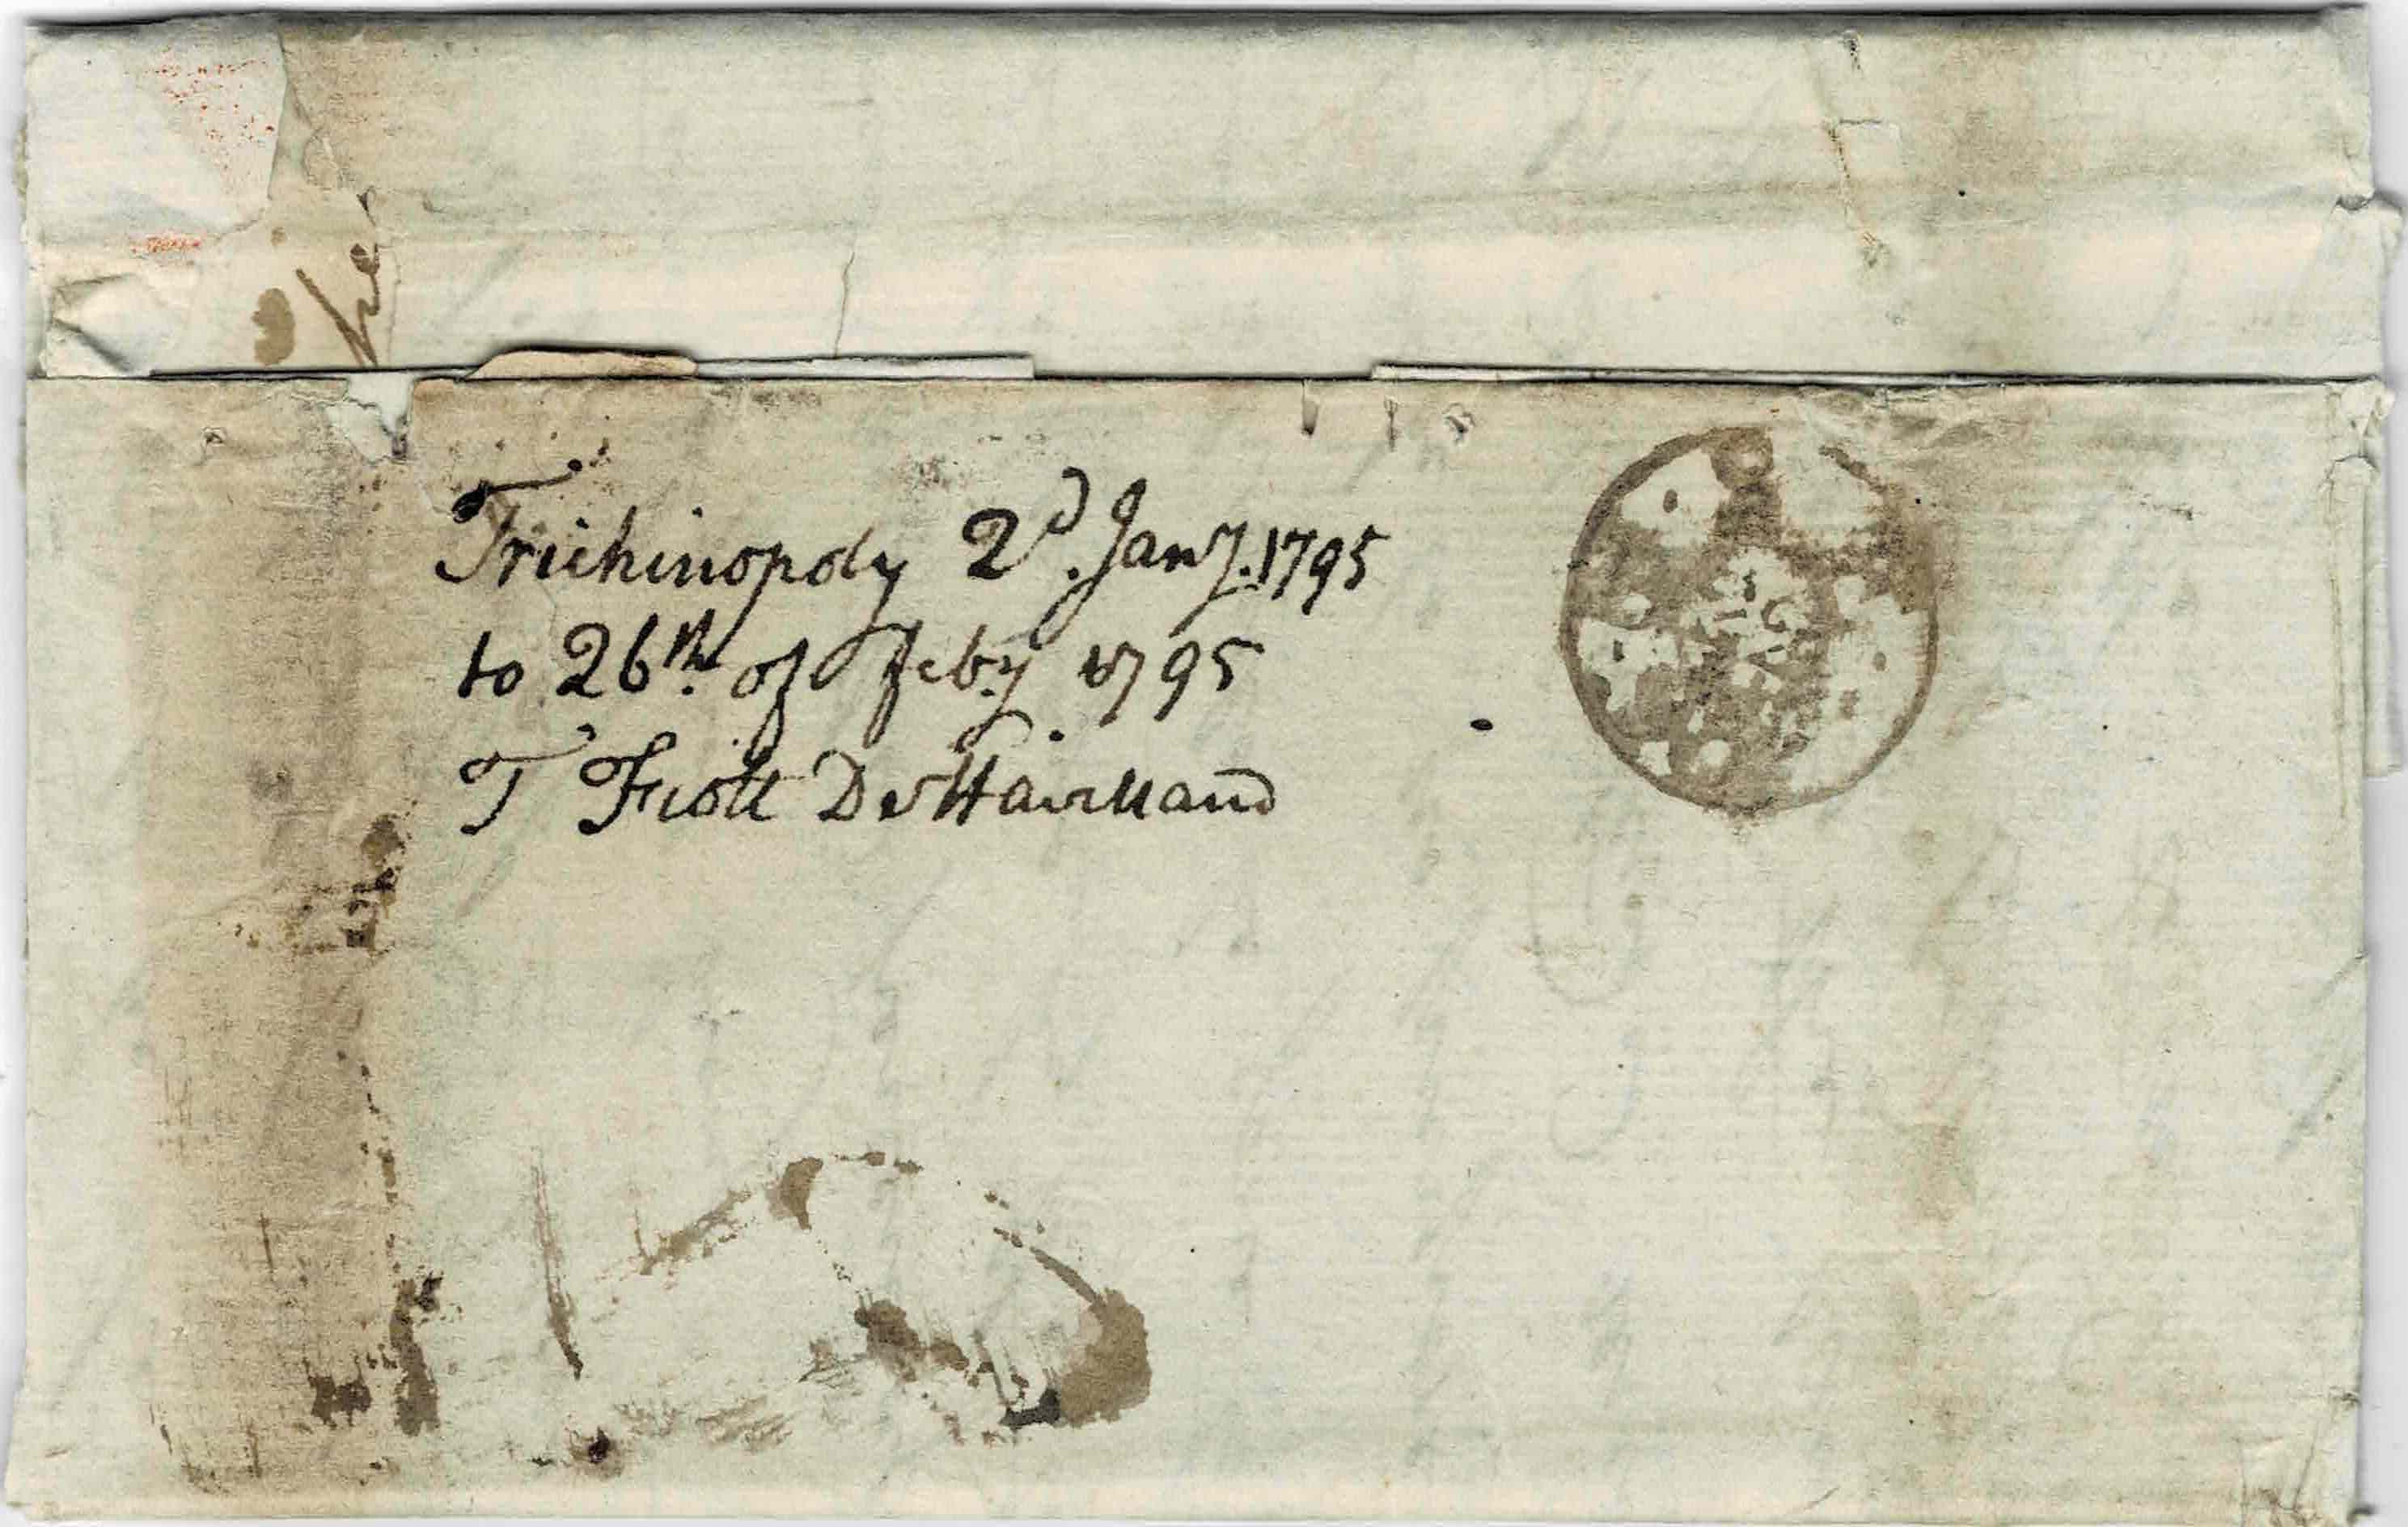 he
Trichinopoly 2d. Jany. 1795
to 26th. of Feby. 1795
T Fiott DeHavilland